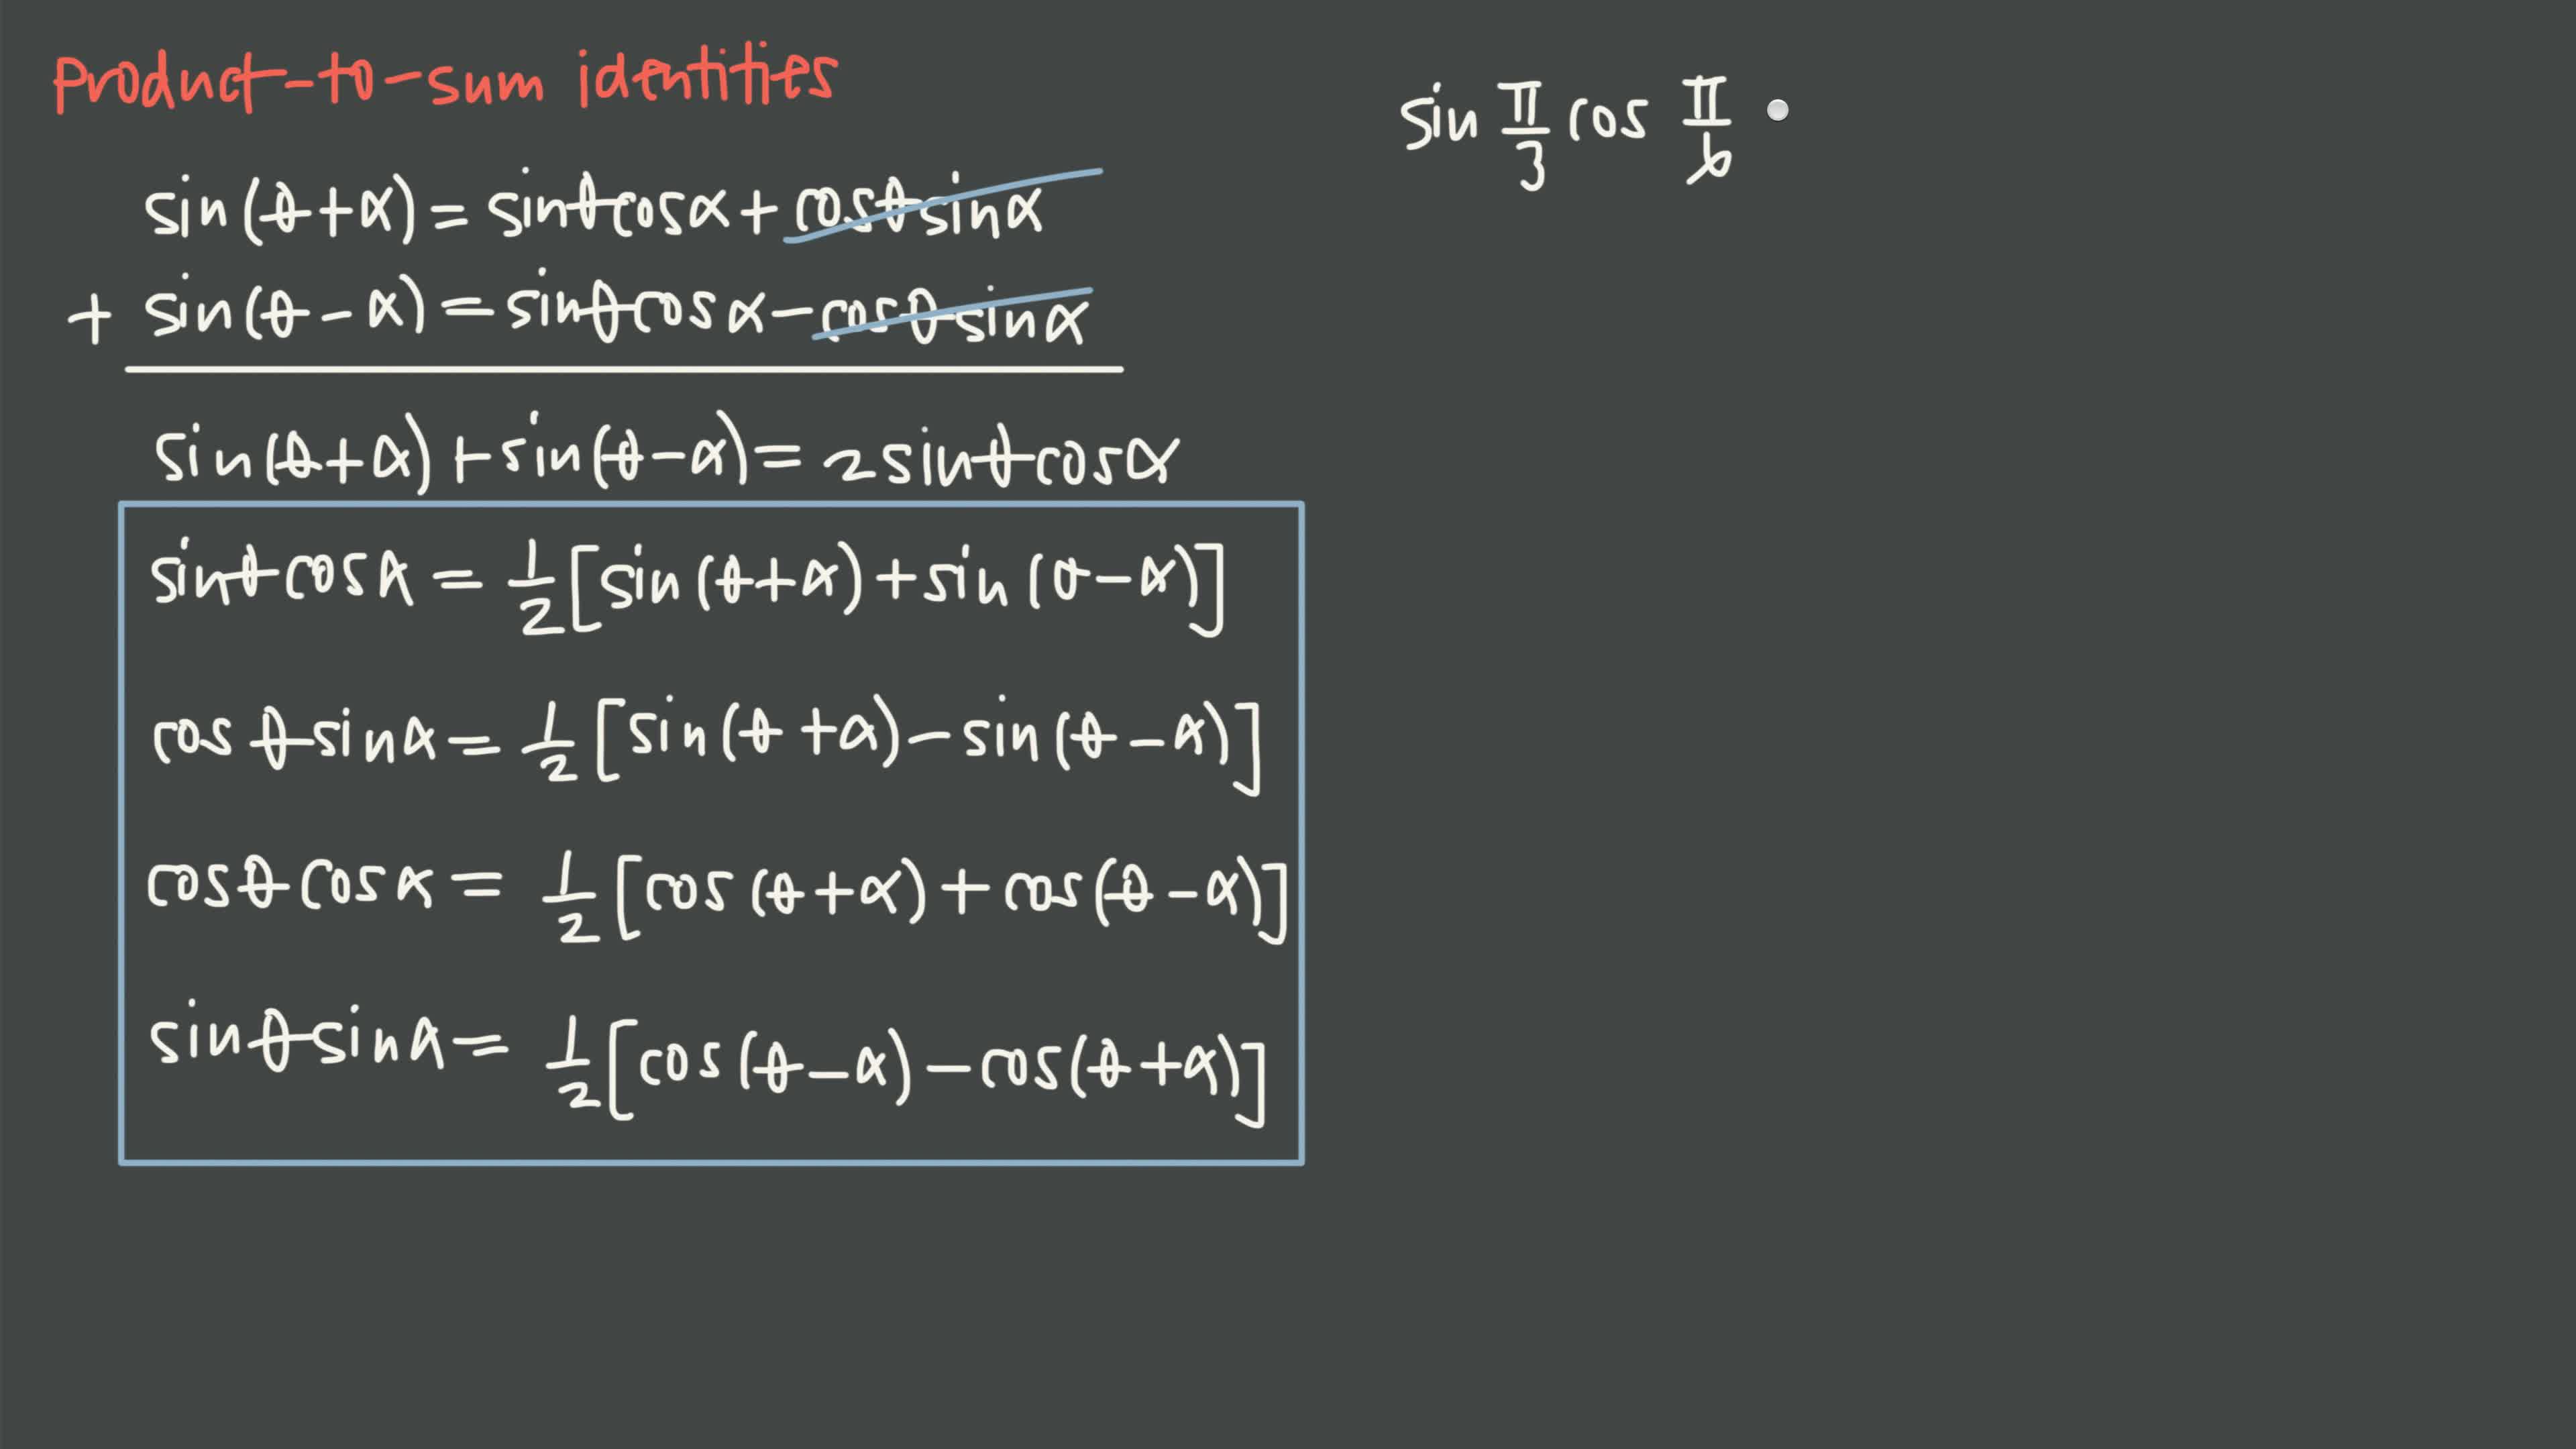 product-to-sum identities
sin(θ+α)=sinθcosα+cosθsinα
+ sin(θ-α)=sinθcosα-cosθsinα
sin(θ+α)+sin(θ-α)=2sinθcosα
sinθcosα=1/2[sin(θ+α)+sin(θ-α)]
cosθsinα=1/2[sin(θ+α)-sin(θ-α)]
cosθcosα=1/2[cos(θ+α)+cos(θ-α)]
sinθsinα=1/2[cos(θ-α)-cos(θ+α)]
sin π/3 cos π/6